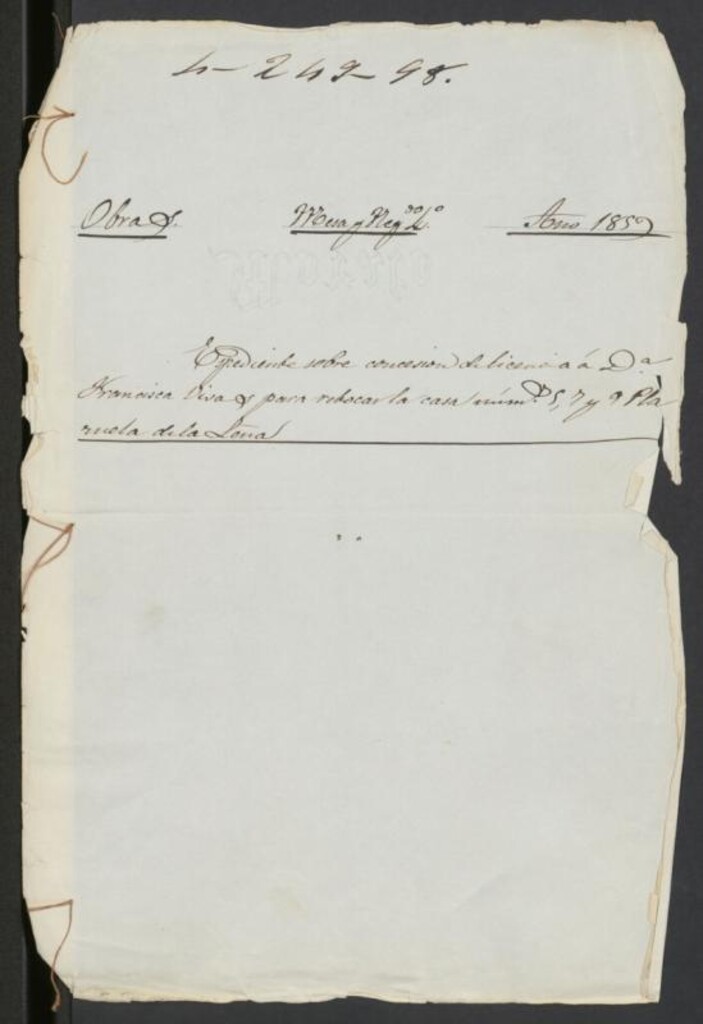 4-249-98.
Obras. Mesa y Neg.do 4.o Año 1859
Expediente sobre concesion de licencia á D.a
Francisca Visas para rebocar la casa núm.s 5, 7 y 9 Pla
zuela de la Leña